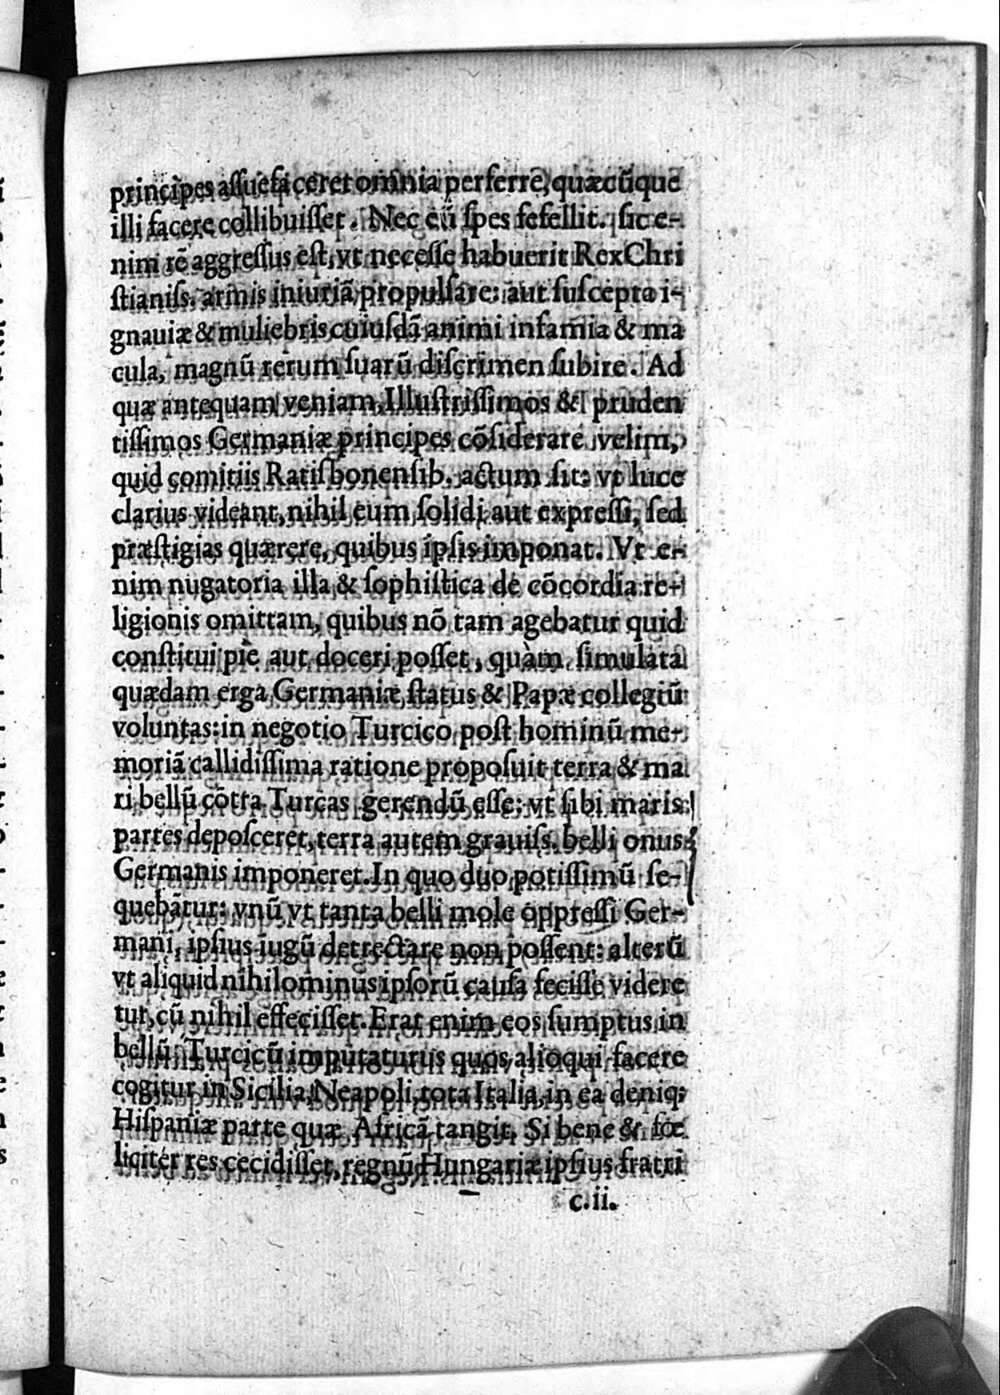 principes assuefaceret omnia perferre, quæcũque
illi facere collibuisset. Nec eũ spes fefellit. sic e-
nim rẽ aggressus est, vt necesse habuerit Rex Chri
stianiss. armis iniuriã propulsare: aut suscepta i-
gnauiæ & muliebris cuiusdã animi infamia & ma
cula, magnũ rerum suarũ discrimen subire. Ad
quæ antequam veniam, Illustrissimos & pruden
tissimos Germaniæ principes cõsiderare velim,
quid comitiis Ratisbonensib. actum sit: vt luce
clarius videant, nihil eum solidi aut expressi, sed
præstigias quærere, quibus ipsis imponat. Vt e-
nim nugatoria illa & sophistica de cõcordia re-
ligionis omittam, quibus nõ tam agebatur quid
constitui pie aut doceri posset, quàm simulata
quædam erga Germaniæ status & Papæ collegiũ
voluntas: in negotio Turcico post hominũ me-
moriã callidissima ratione proposuit terra & ma
ri bellũ cõtra Turcas gerendũ esse: vt sibi maris
partes deposceret, terra autem grauiss. belli onus
Germanis imponeret. In quo duo potissimũ se-
quebãtur: vnũ vt tanta belli mole oppressi Ger-
mani, ipsius iugũ detrectare non possent: alterũ
vt aliquid nihilominus ipsorũ causa fecisse videre
tur, cũ nihil effecisset. Erat enim eos sumptus in
bellũ Turcicũ imputaturus quos alioqui facere
cogitur in Sicilia, Neapoli, tota Italia, in ea deniq;
Hispaniæ parte quæ Africã tangit. Si bene & fœ
liciter res cecidisset, regnũ Hungariæ ipsius fratri
c.ii.